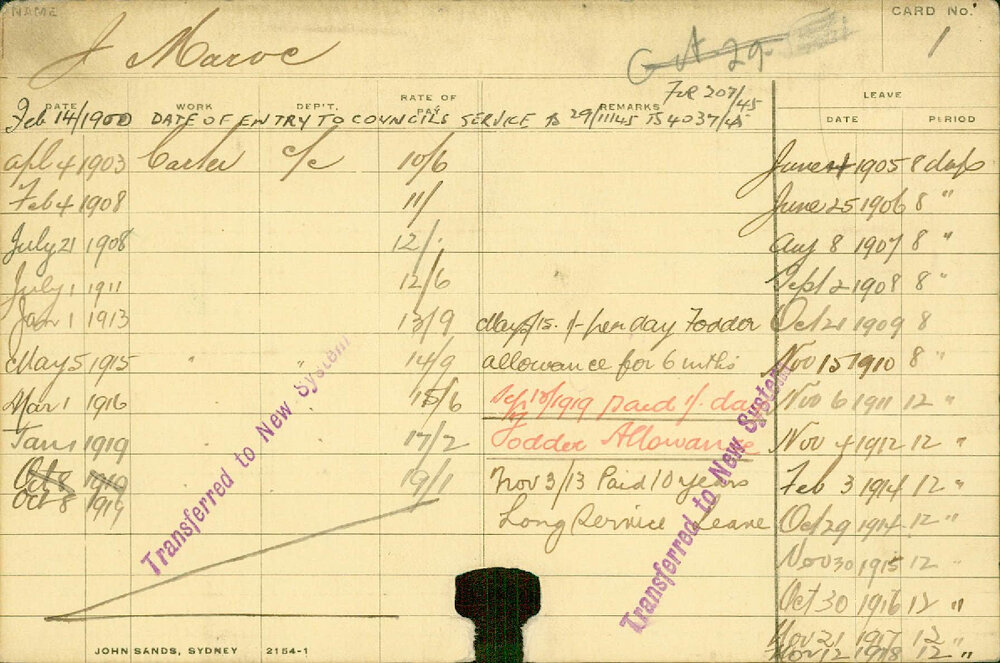 NAME
CARD No.
J Maroc
Oct 29
1
DATE WORK DEP'T. RATE OF PAY REMARKS LEAVE
DATE PERIOD
FCR 207/45
Feb 14/1900 DATE OF ENTRY TO COUNCILS SERVICE TS 29/11/45 TS 4037/45
Apl 4 1903 Carter c/c 10/6 June 4 1905 8 days
Feb 4 1908 11/ June 25 1906 8 "
July 21 1908 12/. Aug 8 1907 8 "
July 1 1911 12/6 Sept 2 1908 8 "
Jan 1 1913 13/9 May 5/15. 1/- per day Fodder Oct 21 1909 8
May 5 1915 " " 14/9 allowance for 6 mths Nov 15 1910 8 "
Mar 1 1916 15/6 Sep 18/1919 paid 1/ day Nov 6 1911 12 "
Jan 1 1919 17/2 Fodder Allowance Nov 4 1912 12 "
Oct 8 1919 19/1 Nov 3/13 Paid 10 years Feb 3 1914 12 "
Oct 8 1919 Long Service Leave Oct 29 1914 12 "
Nov 30 1915 12 "
Oct 30 1916 12 "
Nov 21 1917 12 "
Nov 12 1918 12 "
Transferred to New System
Transferred to New System
JOHN SANDS, SYDNEY 2154-1